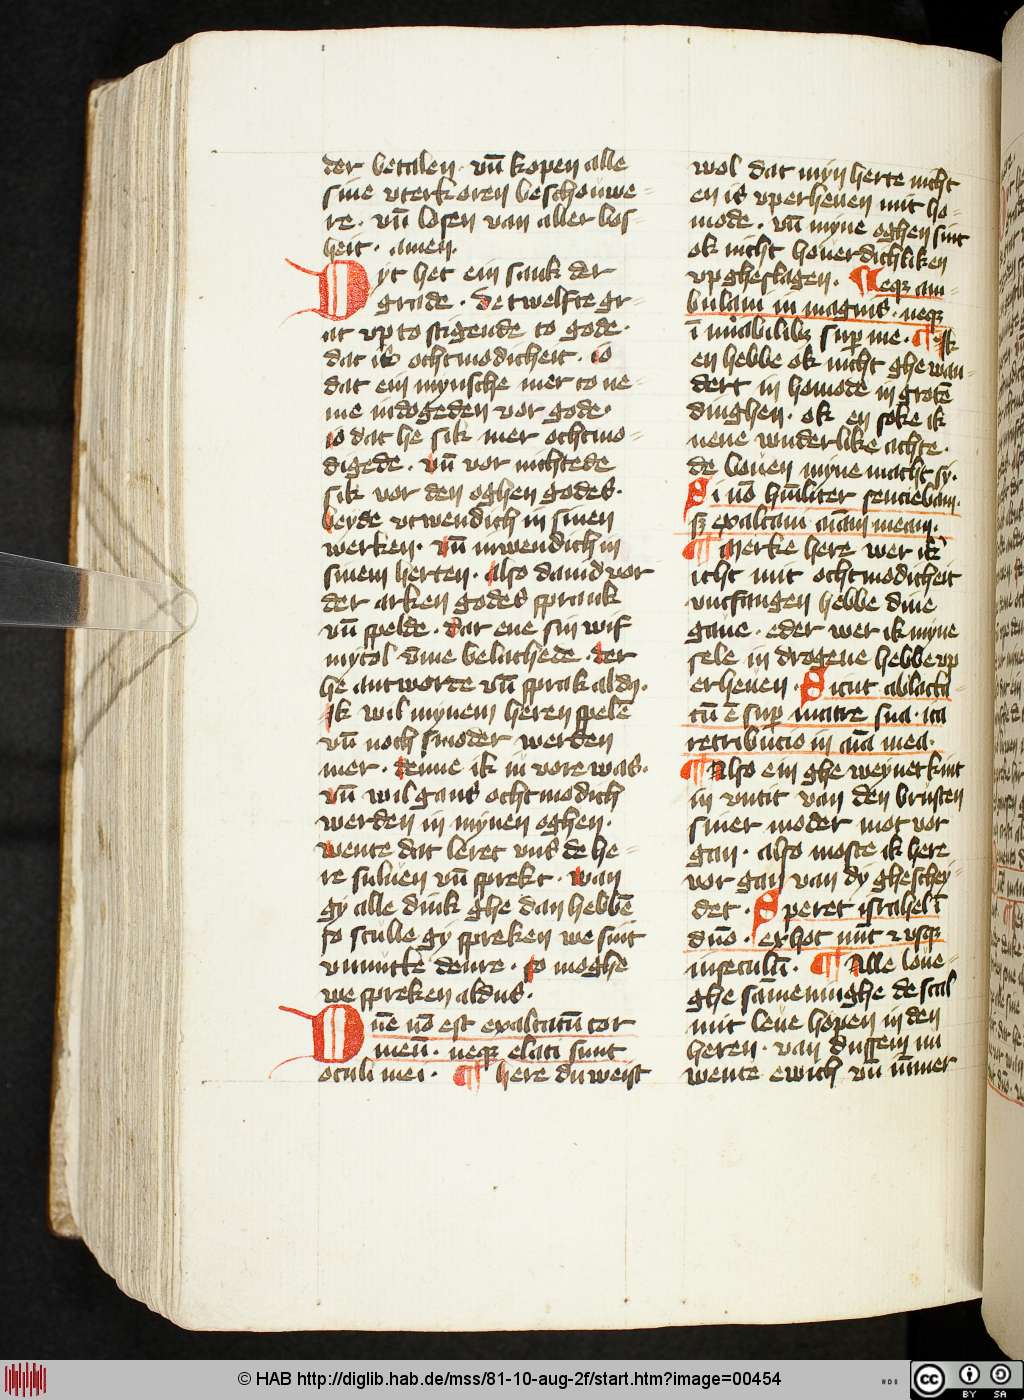 der betalen · vn̄ kopen alle
sine vterkoren beschouwe=
re · vn̄ losen van aller bos
heit · amen.
Dyt het ein sank der
grade · de twelfte gr=
at vp to stigende to gode ·
dat is ochtmodicheit · io
dat ein mynsche mer to ne=
me in dogeden vor gode ·
io dat he sik mer ochtmo=
digede · vn̄ vor nichtede
sik vor den oghen godes ·
beyde vtwendich in sinen
werken · vn̄ inwendich in
sinem herten · also dauid vor
der arken godes sprank
vn̄ spelde · dar ene sin wif
mycol v̄me belachede · der
he antworde vn̄ sprak aldꝰ ·
ik wil mynem heren spelē
vn̄ noch snoder werden
mer · denne ik ju vore was ·
vn̄ wil gans ochtmodich
werden in mynen oghen ·
wente dat leret vns de he=
re suluen vn̄ sprekt · wan
gy alle dink ghe dan hebbē
so sculle gy spreken we sint
vnnutte denre · so moghē
we spreken aldus ·
Dn̄e nō est exaltatū cor
meū · neqꝫ elati sunt
oculi mei · ¶ here du weist
wol dat myn herte nicht
en is vperheuen mit ho=
mode · vn̄ myne oghen sint
ok nicht houerdichliken
vpgheslagen · Neqꝫ am=
bulaui in magnis · neqꝫ
ī mirabilibꝫ sup me · ¶ Ik
en hebbe ok nicht ghe wan=
dert in homode in grotē
dinghen · ok en soke ik
nene wnderlike achte ·
de bouen myne macht sy ·
Si nō hūiliter sentiebam ·
sꝫ exaltaui aīam meam ·
¶ Merke here wer ik
icht mit ochtmodicheit
vntfangen hebbe dine
gaue · eder wer ik myne
sele in drogene hebbe vp
erheuen · Sicut ablacta=
tū ē sup matre sua · ita
retributio in aīa mea ·
¶ Also ein ghe weynet kint
in vntit van den brusten
siner moder mot vor
gan · also moste ik here
vor gan van dy gheschey=
det · Speret israhel ī
dn̄o · ex hoc nūc ⁊ vsqꝫ
in seculū · ¶ Alle loue=
ghe sāmeninghe de scal
mit leue hopen in den
heren · van dussem nu
wente ewich vn̄ ūmer
© HAB http://diglib.hab.de/mss/81-10-aug-2f/start.htm?image=00454
cc
BY SA